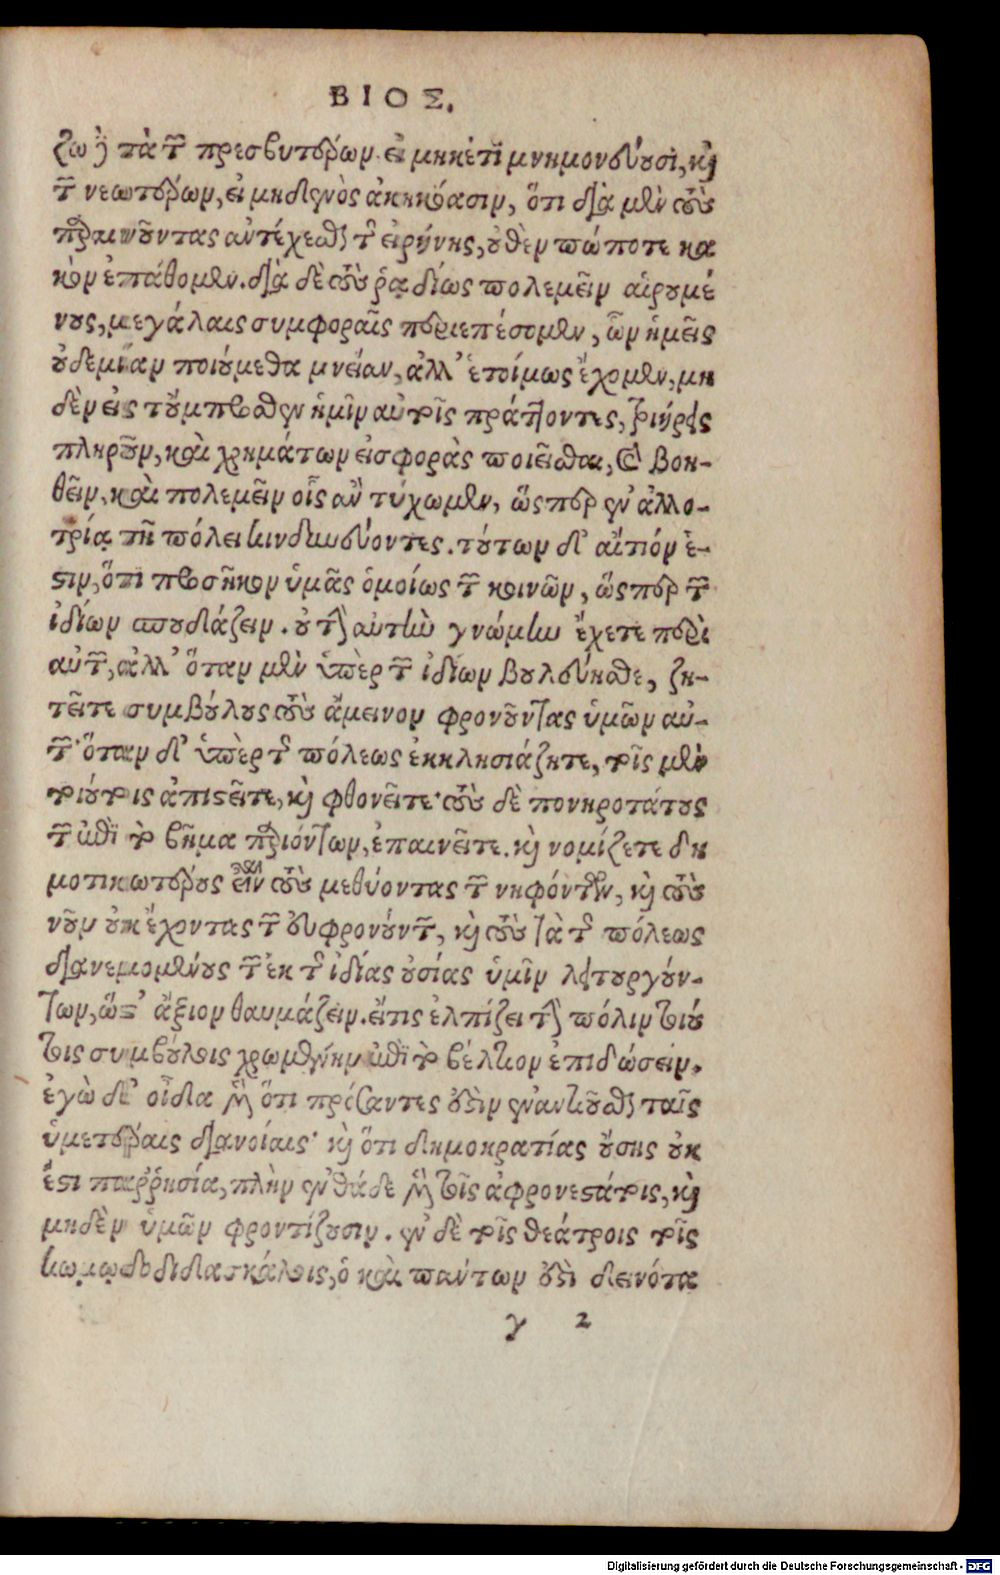 ΒΙΟΣ.
ζω δὲ τὰ τῶν πρεσβυτέρων εἰ μηκέτι μνημονεύουσι, καὶ
τῶν νεωτέρων, εἰ μηδενὸς ἀκηκόασιν, ὅτι διὰ μὲν τοὺς
παραινοῦντας ἀντέχεσθαι τῆς εἰρήνης, οὐθὲν πώποτε κα
κὸν ἐπάθομεν. διὰ δὲ τοὺς ῥᾳδίως πολεμεῖν αἱρουμέ
νους, μεγάλαις συμφοραῖς περιεπέσομεν, ὧν ἡμεῖς
οὐδεμίαν ποιούμεθα μνείαν, ἀλλ' ἑτοίμως ἔχομεν, μη
δὲν εἰς τοὔμπροσθεν ἡμῖν αὐτοῖς πράττοντες, τριήρεις
πληροῦν, καὶ χρημάτων εἰσφορὰς ποιεῖσθαι, καὶ βοη-
θεῖν, καὶ πολεμεῖν οἷς ἂν τύχωμεν, ὥσπερ ἐν ἀλλο-
τρίᾳ τῇ πόλει κινδυνεύοντες. τούτων δ' αἴτιόν ἐ-
στιν, ὅτι προσῆκον ὑμᾶς ὁμοίως τῶν κοινῶν, ὥσπερ τῶν
ἰδίων σπουδάζειν. οὐ τὴν αὐτὴν γνώμην ἔχετε περὶ
αὐτῶν, ἀλλ' ὅταν μὲν ὑπὲρ τῶν ἰδίων βουλεύησθε, ζη-
τεῖτε συμβούλους τοὺς ἄμεινον φρονοῦντας ὑμῶν αὐ-
τῶν· ὅταν δ' ὑπὲρ τῆς πόλεως ἐκκλησιάζητε, τοῖς μὲν
τοιούτοις ἀπιστεῖτε, καὶ φθονεῖτε· τοὺς δὲ πονηροτάτους
τῶν ἐπὶ τὸ βῆμα παριόντων, ἐπαινεῖτε. καὶ νομίζετε δη
μοτικωτέρους εἶναι τοὺς μεθύοντας τῶν νηφόντων, καὶ τοὺς
νοῦν οὐκ ἔχοντας τῶν εὐφρονούντων, καὶ τοὺς τὰ τῆς πόλεως
διανεμομένους τῶν ἐκ τῆς ἰδίας οὐσίας ὑμῖν λειτουργούν-
των, ὥστ' ἄξιον θαυμάζειν. εἴτις ἐλπίζει τὴν πόλιν τοιού
τοις συμβούλοις χρωμένην ἐπὶ τὸ βέλτιον ἐπιδώσειν.
ἐγὼ δ' οἶδα μὲν ὅτι πρόσαντές ἐστιν ἐναντιοῦσθαι ταῖς
ὑμετέραις διανοίαις· καὶ ὅτι δημοκρατίας οὔσης οὐκ
ἔστι παῤῥησία, πλὴν ἐνθάδε μὲν τοῖς ἀφρονεστάτοις, καὶ
μηδὲν ὑμῶν φροντίζουσιν. ἐν δὲ τοῖς θεάτροις τοῖς
κωμῳδοδιδασκάλοις, ὃ καὶ πάντων ἐστὶ δεινότα
γ 2
Digitalisierung gefördert durch die Deutsche Forschungsgemeinschaft - DFG